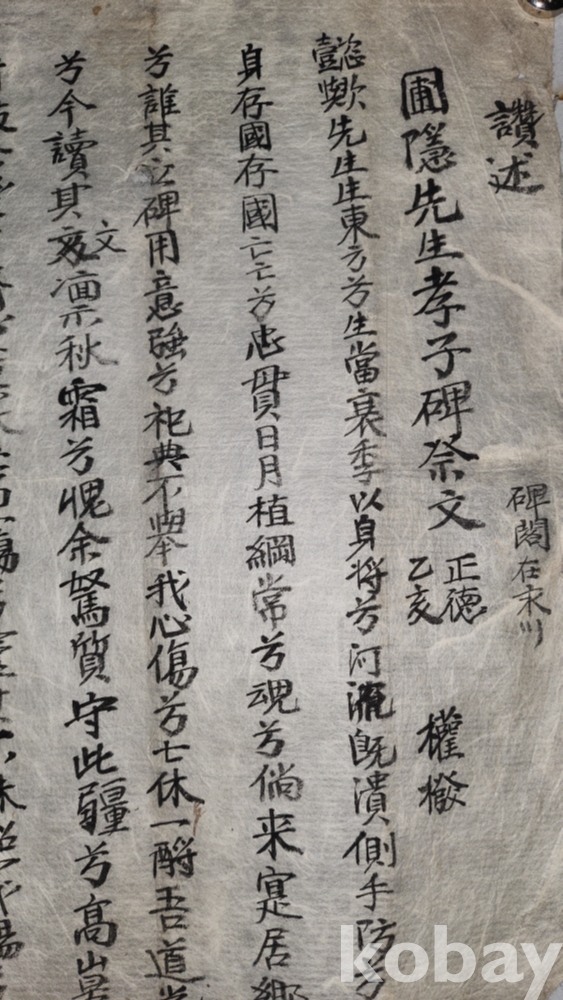 讚述
碑閣在永川
圃隱先生孝子碑祭文 正德乙亥 權橃
懿歟先生生東方兮生當衰季以身將兮河流既潰側手防兮
身存國存國亡亡兮忠貫日月植綱常兮魂兮倘来寔居鄕
兮誰其立碑用意強兮祀典不擧我心傷兮七休一酹吾道
兮今讀其文凛秋霜兮愧余駑質守此疆兮高山景
kobay